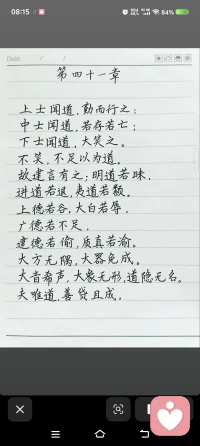 08:15
84%
Date / /
第四十一章
上士闻道,勤而行之;
中士闻道,若存若亡;
下士闻道,大笑之。
不笑,不足以为道。
故建言有之:明道若昧,
进道若退,夷道若颣。
上德若谷,大白若辱,
广德若不足,
建德若偷,质真若渝。
大方无隅,大器免成。
大音希声,大象无形,道隐无名。
夫唯道,善贷且成。